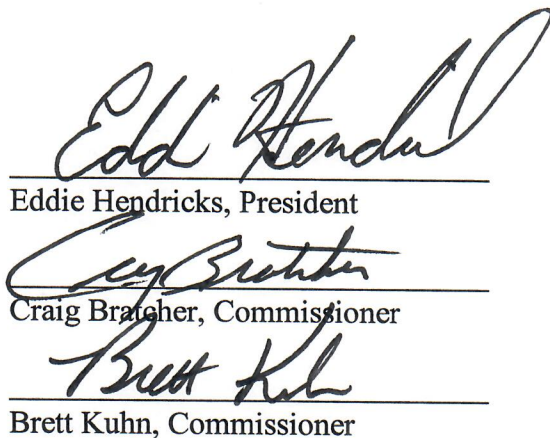 Edd Hendric
Eddie Hendricks, President
Craig Bratcher
Craig Bratcher, Commissioner
Brett Kuhn
Brett Kuhn, Commissioner